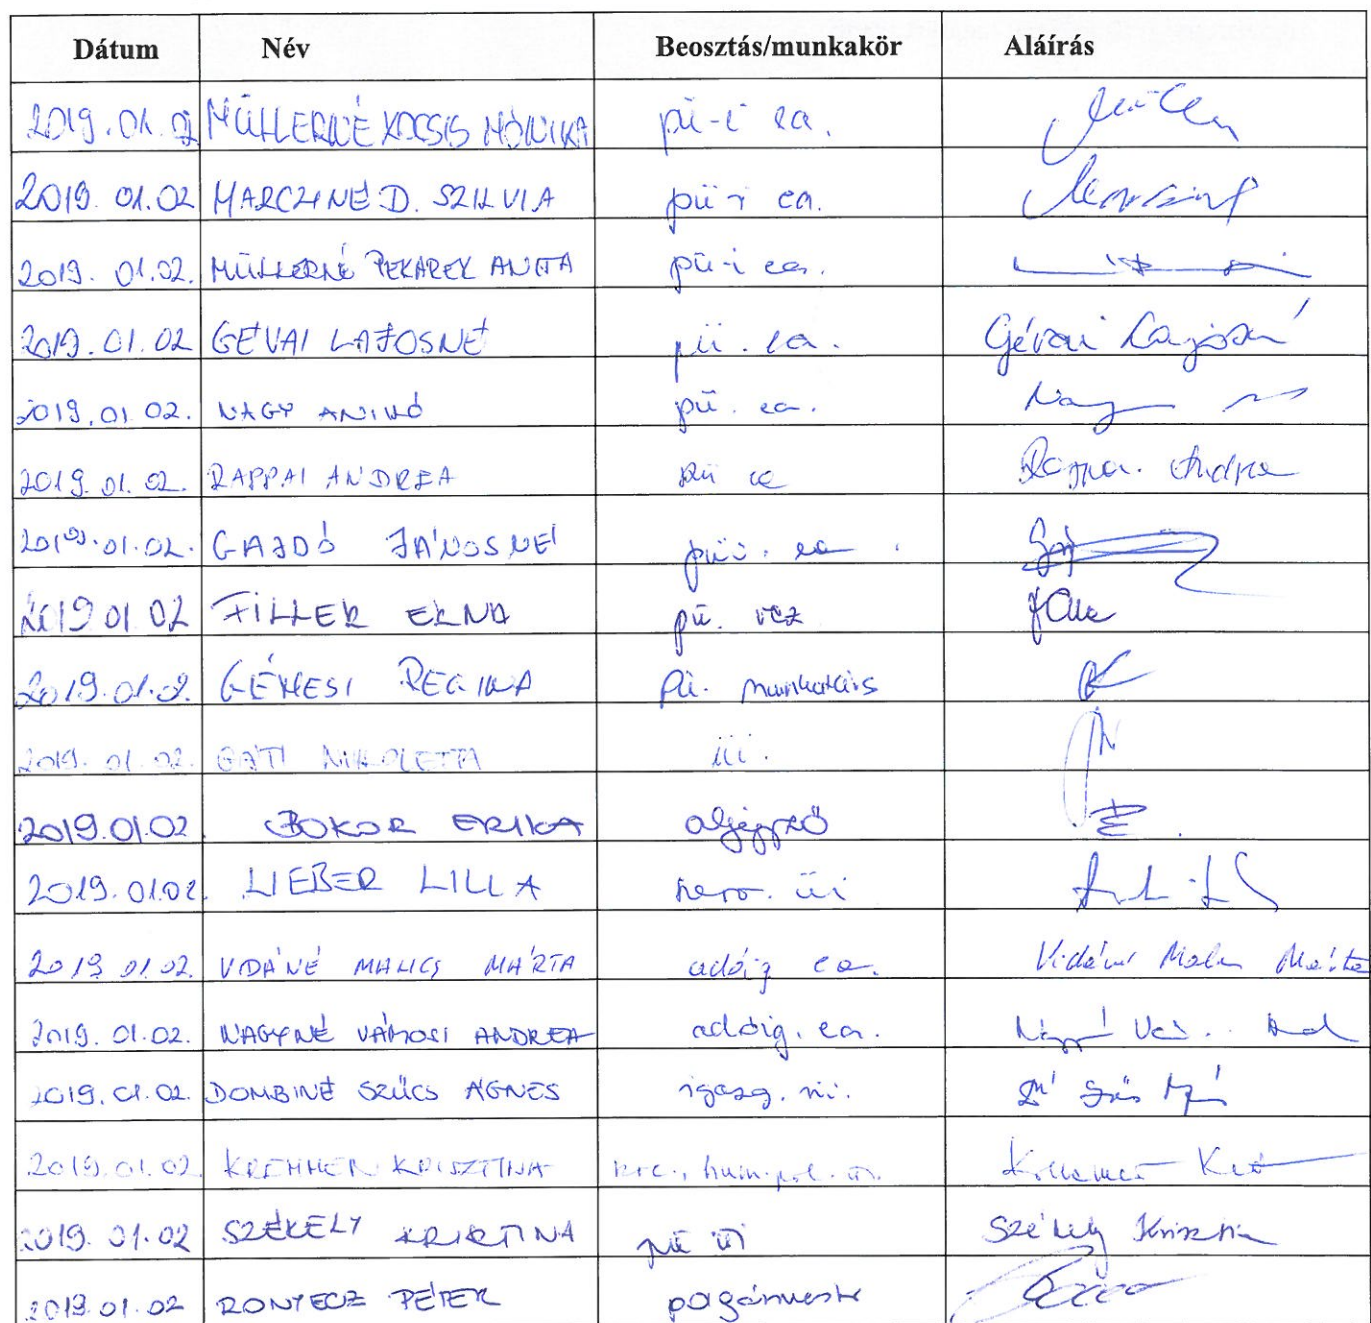 Dátum Név Beosztás/munkakör Aláírás
2019.01.02 MÜLLERNÉ KOCSIS MÓNIKA pü-i ea.
2019.01.02 MARCZINÉ D. SZILVIA pü-i ea.
2019.01.02. MÜLLERNÉ PEKAREK ANITA pü-i ea.
2019.01.02 GÉVAI LAJOSNÉ pü. ea. Gévai Lajosné
2019.01.02. NAGY ANIKÓ pü. ea. Nagy
2019.01.02. RAPPAI ANDREA pü ea Rappai Andrea
2019.01.02. GAJDÓ JÁNOSNÉ pü. ea.
2019 01 02 FILLER ERNA pü. vez
2019.01.02. GÉMESI REGINA Pü. munkatárs
2019.01.02. GÁTI NIKOLETTA üi.
2019.01.02 BOKOR ERIKA aljegyző
2019.01.02. LIEBER LILLA üi
2019 01.02. VIDÁNÉ MALICS MÁRTA adóig ea. Vidáné Malics Márta
2019.01.02. NAGYNÉ VÁMOSI ANDREA adóig. ea.
2019.01.02. DOMBINÉ SZÜCS ÁGNES igazg. üi.
2019.01.02. KREMMER KRISZTINA
2019.01.02 SZÉKELY KRISZTINA pü üi Székely Krisztina
2019.01.02 RONYECZ PÉTER polgármester